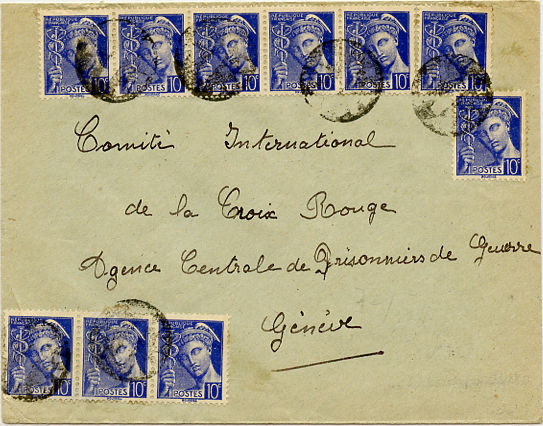 RÉPUBLIQUE FRANÇAISE POSTES 10c
RÉPUBLIQUE FRANÇAISE POSTES 10c
RÉPUBLIQUE FRANÇAISE POSTES 10c
RÉPUBLIQUE FRANÇAISE POSTES 10c
RÉPUBLIQUE FRANÇAISE POSTES 10c
RÉPUBLIQUE FRANÇAISE POSTES 10c
RÉPUBLIQUE FRANÇAISE POSTES 10c
Comité International
de la Croix Rouge
Agence Centrale de Prisonniers de Guerre
Génève
RÉPUBLIQUE FRANÇAISE POSTES 10c
RÉPUBLIQUE FRANÇAISE POSTES 10c
RÉPUBLIQUE FRANÇAISE POSTES 10c